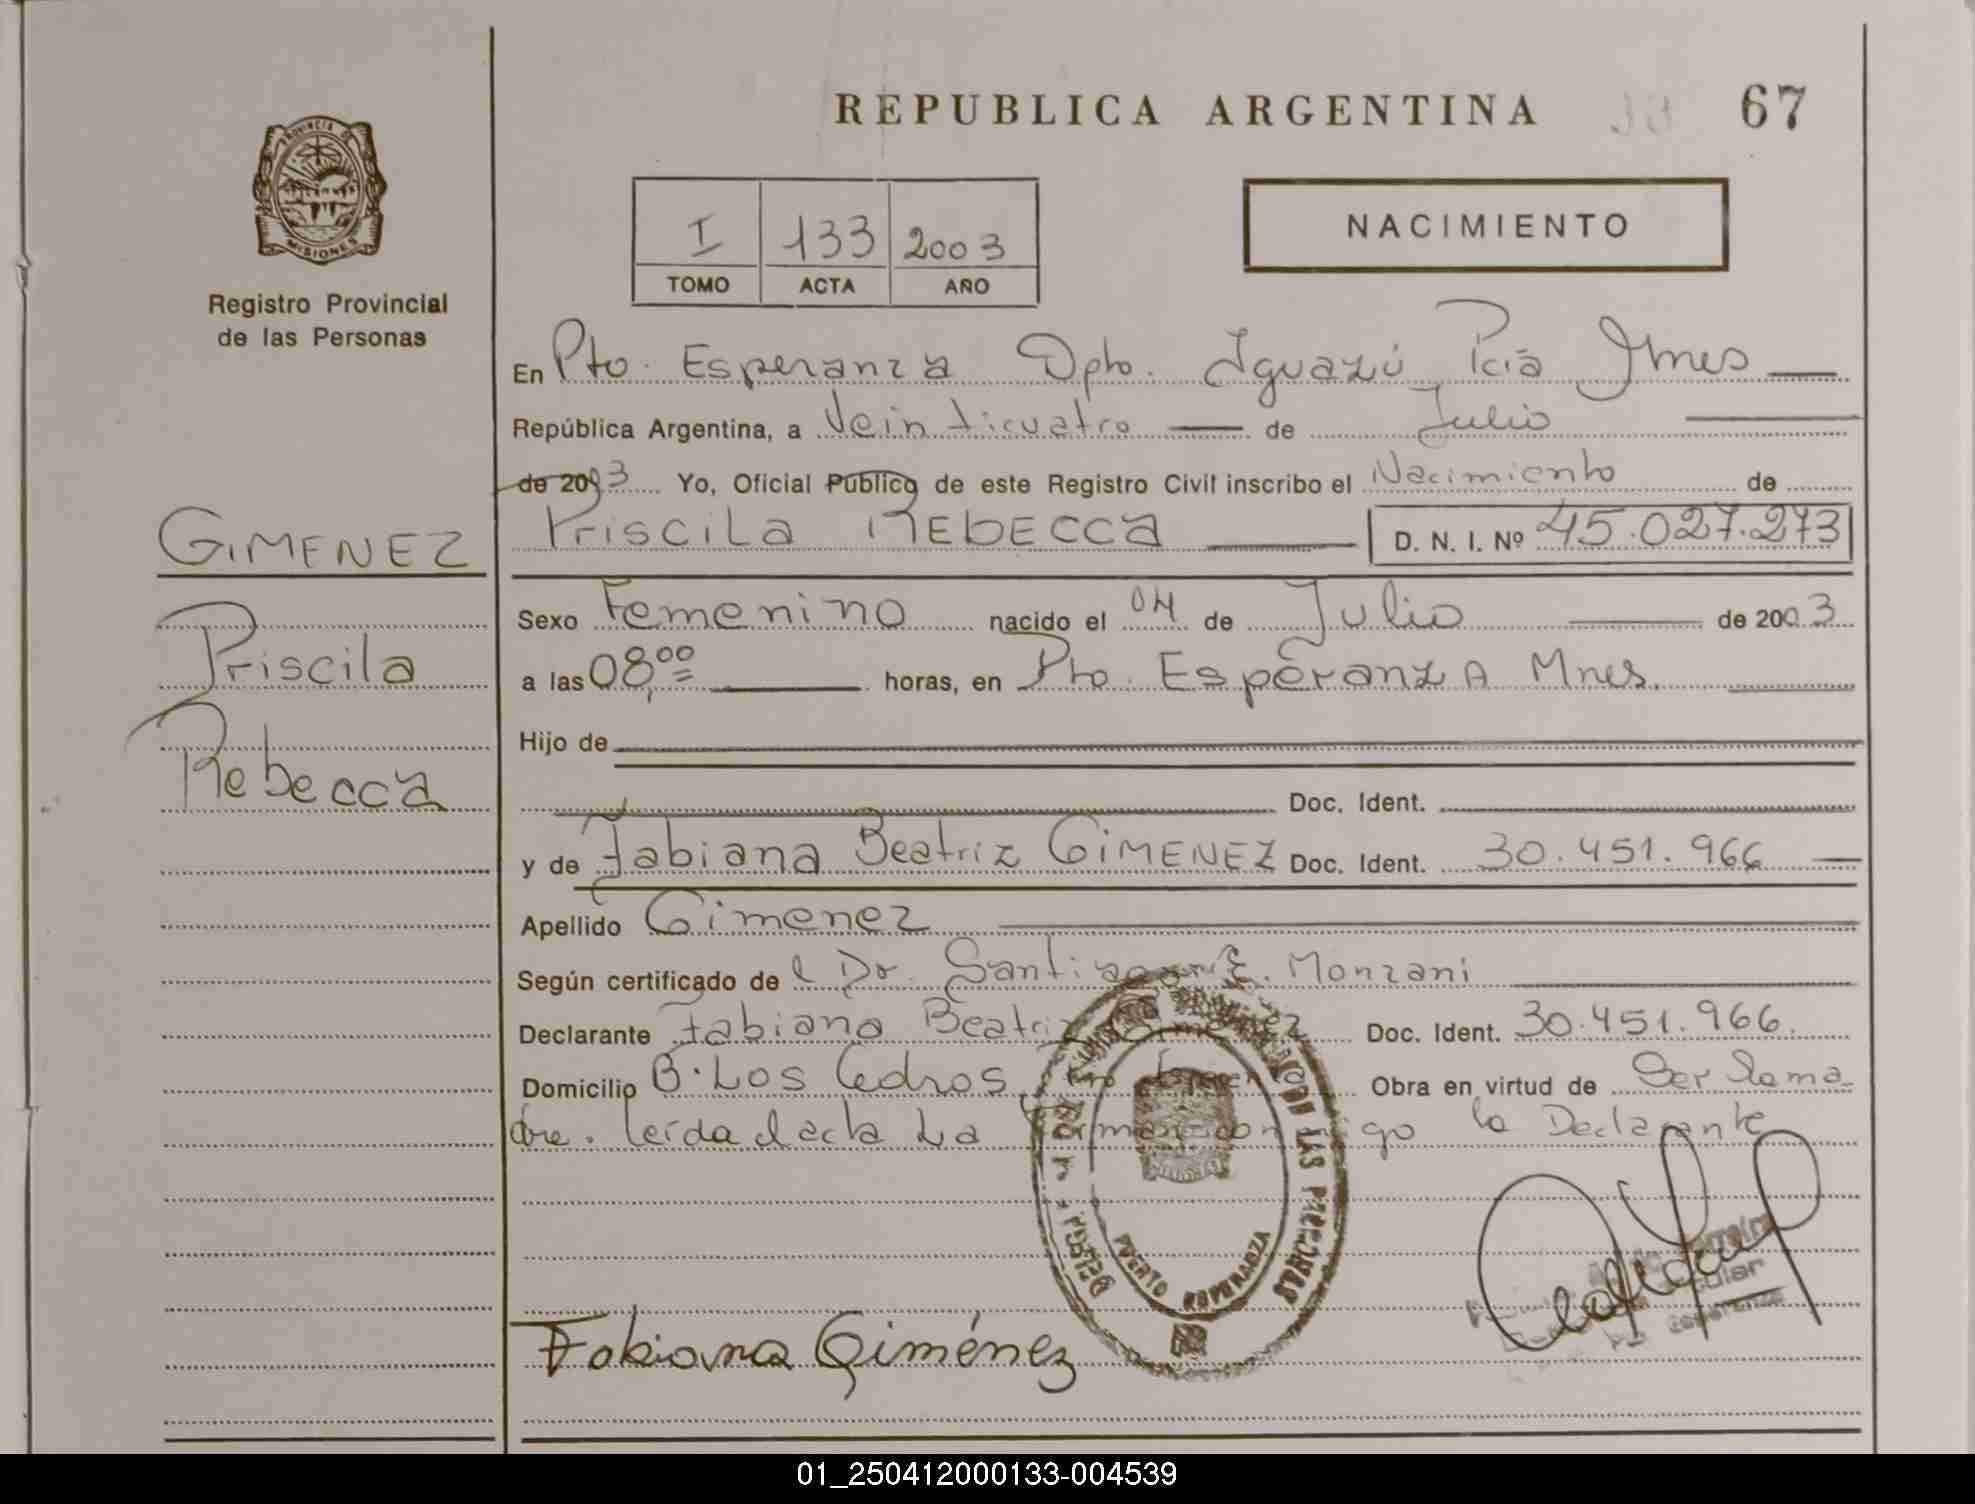 REPUBLICA ARGENTINA 67
PROVINCIA DE
MISIONES
Registro Provincial
de las Personas
I 133 2003
TOMO ACTA AÑO
NACIMIENTO
En Pto. Esperanza Dpto. Iguazú Pcia Mnes
República Argentina, a Veinticuatro de Julio
de 2003 Yo, Oficial Público de este Registro Civil inscribo el Nacimiento de
GIMENEZ
Priscila REbECCa D. N. I. Nº 45.027.273
Sexo Femenino nacido el 04 de Julio de 2003
Priscila
a las 08,00 horas, en Pto. Esperanza Mnes.
Rebecca
Hijo de
Doc. Ident.
y de Fabiana Beatriz GiMENEZ Doc. Ident. 30.451.966
Apellido Gimenez
Según certificado de l Dr. Santiago E. Monzani
Declarante Fabiana Beatriz Gimenez Doc. Ident. 30.451.966.
Domicilio B. Los Cedros, Pto Esperanza Obra en virtud de Ser la ma
dre. leída el acta La Forman conmigo la Declarante
DE LAS PERSONAS
PUERTO ESPERANZA
Fabiana Giménez
Esperanza
01_250412000133-004539